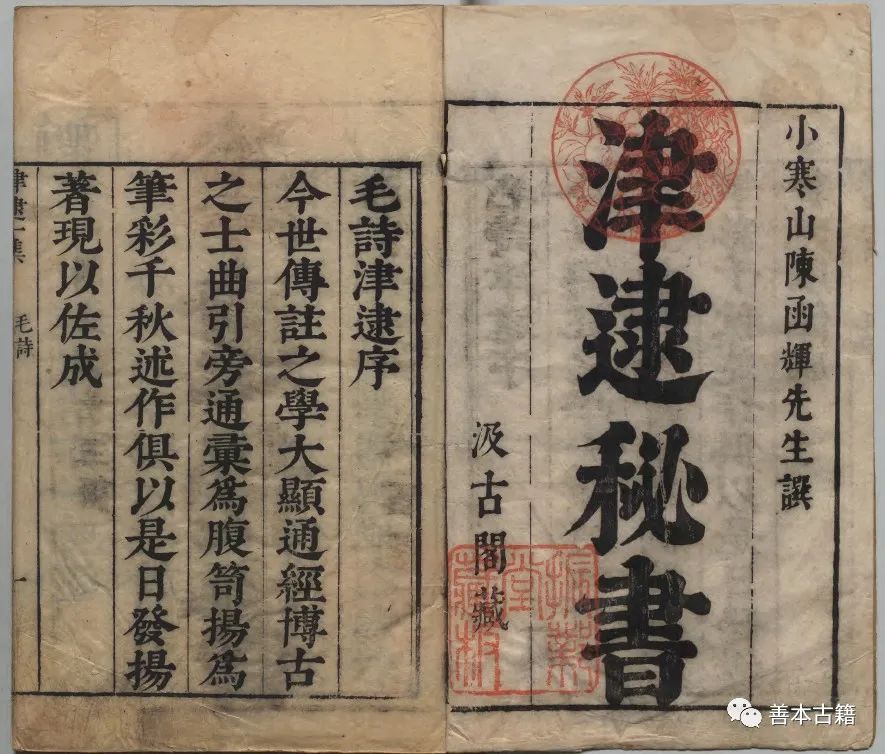 小寒山陳函輝先生譔
津逮秘書
汲古閣藏
毛詩津逮序
今世傳註之學大顯通經博古
之士曲引旁通彙爲腹笥揚爲
筆彩千秋述作俱以是日發揚
著現以佐成
津逮一集 毛詩 一
善本古籍